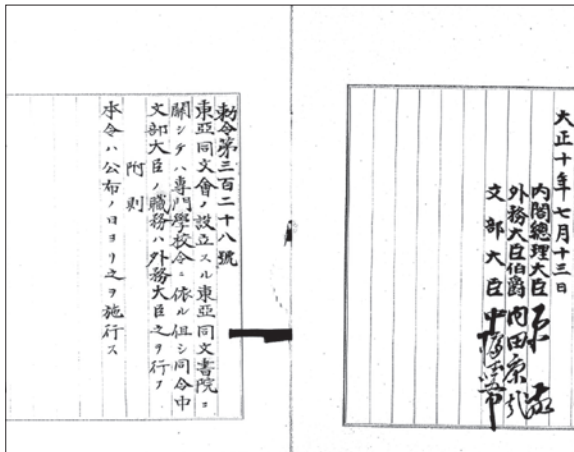 大正十年七月十三日
内閣總理大臣 原敬
外務大臣伯爵 内田康哉
文部大臣 中橋德五郎
勅令第三百二十八號
東亞同文會ノ設立スル東亞同文書院ニ
關シテハ專門學校令ニ依ル但シ同令中
文部大臣ノ職務ハ外務大臣之ヲ行フ
附則
本令ハ公布ノ日ヨリ之ヲ施行ス